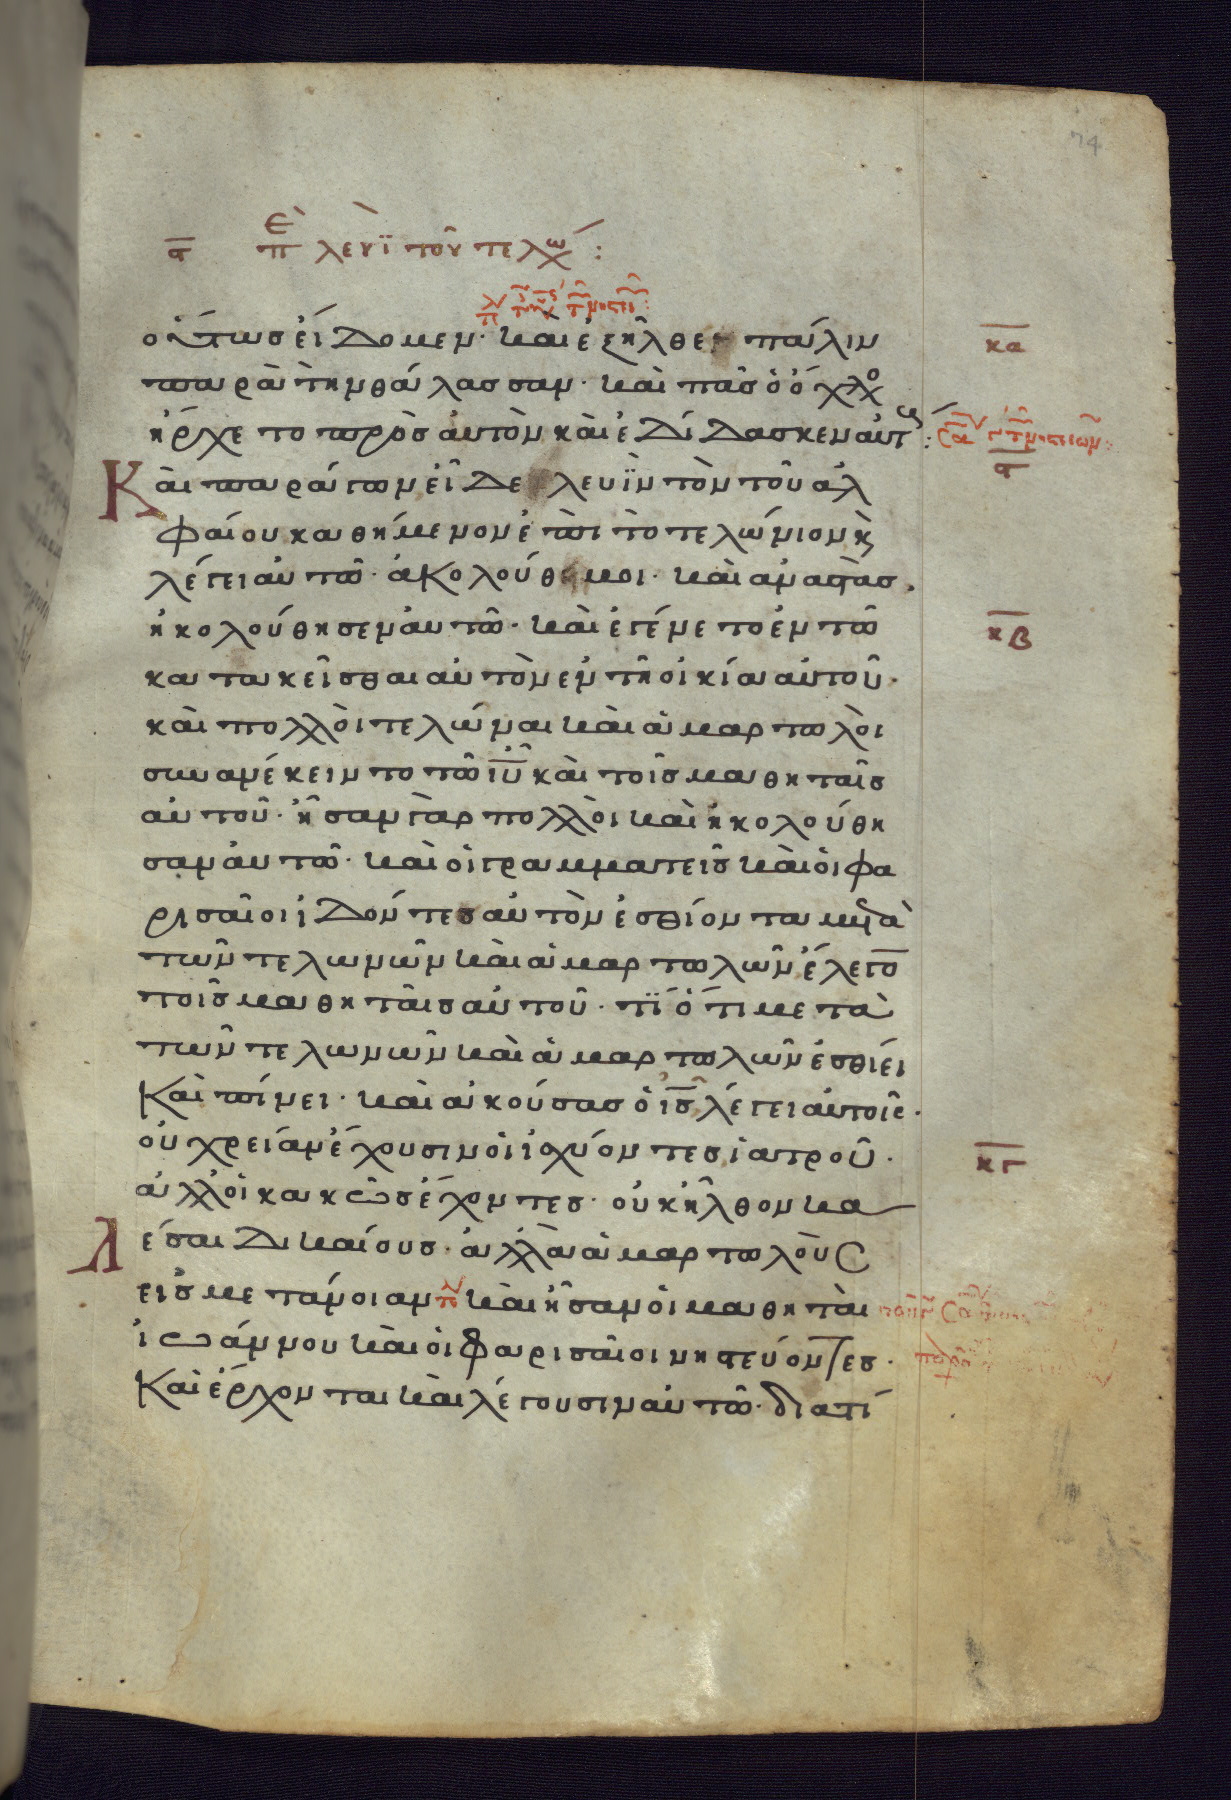 74
ϛ πε λευὶ τοῦ τελώ :
οὕτωσ εἴδομεν· καὶ ἐξῆλθε πάλιν
κα
παρὰ τὴν θάλασσαν· καὶ πᾶσ ὁ ὄχλο
ἤρχετο πρὸσ αὐτὸν καὶ ἐδίδασκεν αὐτούσ :
ϛ
Καὶ παράγων εἶδε λευῒν τὸν τοῦ ἀλ
φαίου καθήμενον ἐπὶ τὸ τελώνιον κ̀
λέγει αὐτῶ· ἀκολούθει μοι· καὶ ἀναστὰσ
ἠκολούθησεν αὐτῶ· καὶ ἐγένετο ἐν τῶ
κβ
κατακεῖσθαι αὐτὸν ἐν τῆ οἰκία αὐτοῦ·
καὶ πολλοὶ τελώναι καὶ ἁμαρτωλοὶ
συνανέκειντο τῶ ιῦ καὶ τοῖσ μαθηταῖσ
αὐτοῦ· ἦσαν γὰρ πολλοὶ καὶ ἠκολούθη
σαν αὐτῶ· καὶ οἱ γραμματεῖσ καὶ οἱ φα
ρισαῖοι ἰδόντεσ αὐτὸν ἐσθίοντα μετὰ
τῶν τελωνῶν καὶ ἁμαρτωλῶν ἔλεγο
τοῖσ μαθηταῖσ αὐτοῦ· τί ὅτι μετὰ
τῶν τελωνῶν καὶ ἁμαρτωλῶν ἐσθίει
Καὶ πίνει· καὶ ἀκούσασ ὁ ισ λέγει αὐτοῖσ·
οὐ χρείαν ἔχουσιν οἱ ἰσχύοντεσ ἰατροῦ·
κγ
ἀλλ' οἱ κακῶσ ἔχοντεσ· οὐκ ἦλθον κα
λέσαι δικαίουσ· ἀλλὰ ἁμαρτωλοὺσ
εἰσ μετάνοιαν καὶ ἦσαν οἱ μαθηταὶ
ἰωάννου καὶ οἱ φαρισαῖοι νηστεύοντεσ·
Καὶ ἔρχονται καὶ λέγουσιν αὐτῶ· διατί